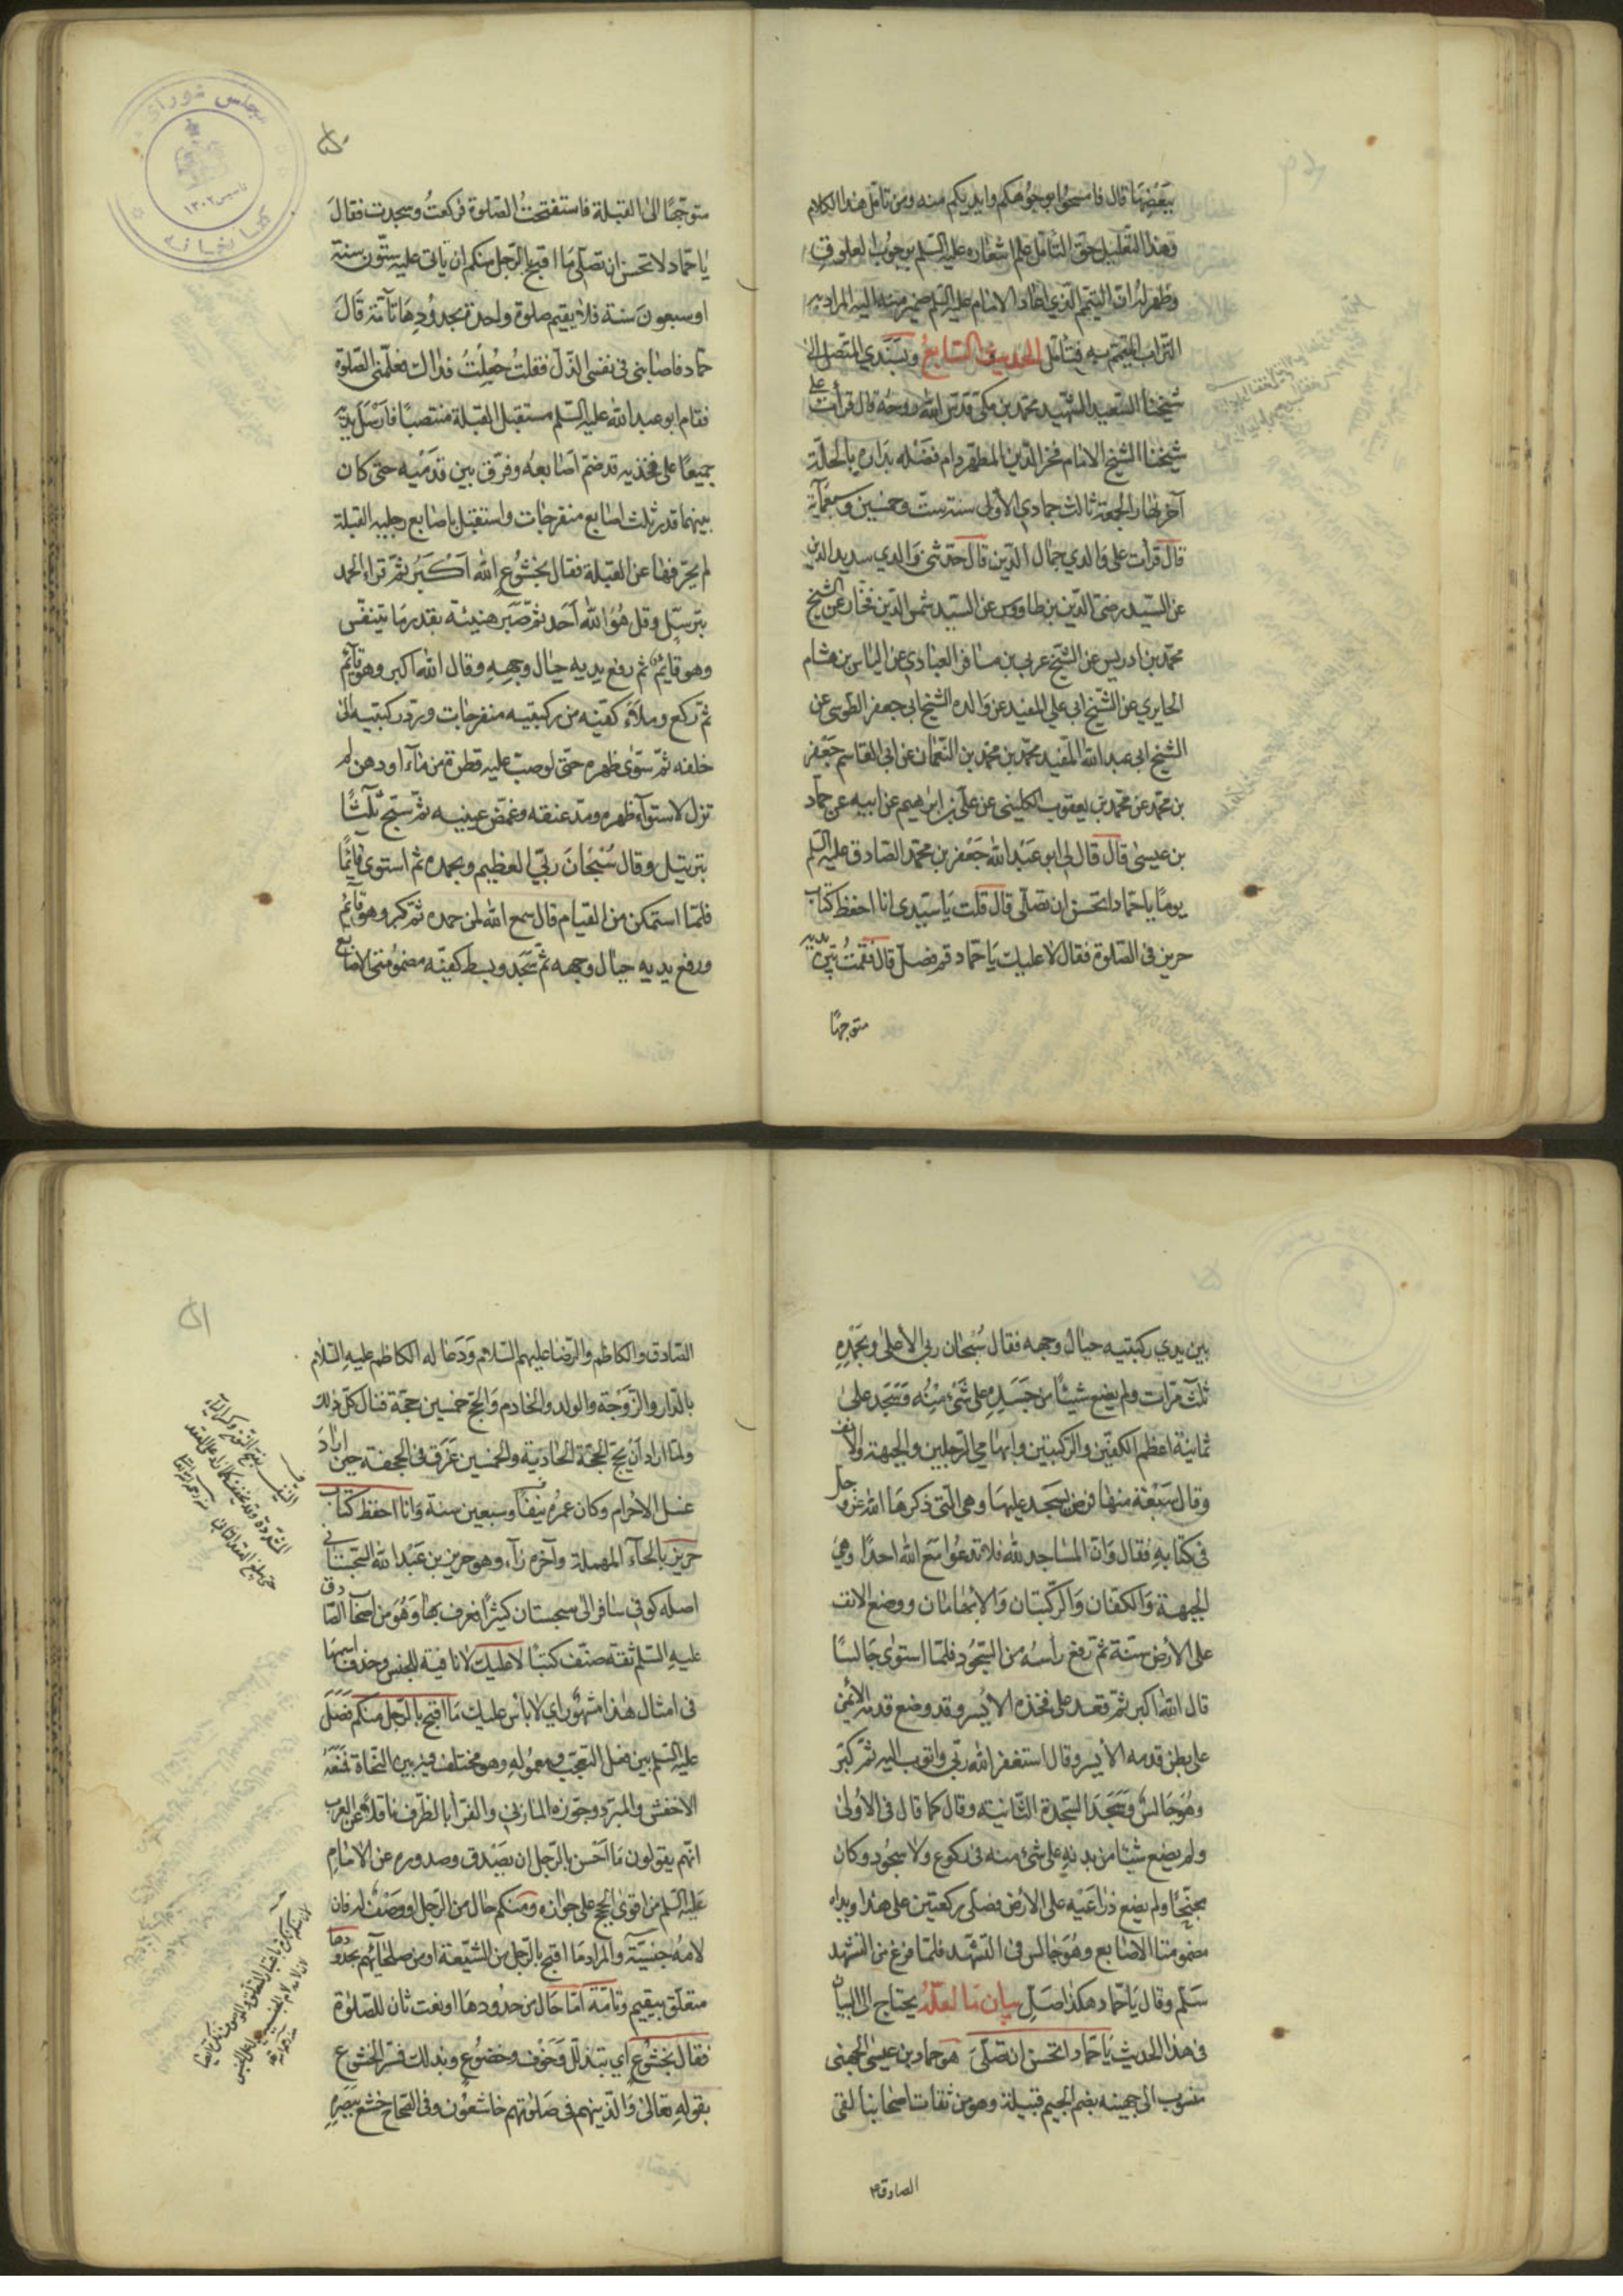 ببعضها قال فامسحوا بوجوهكم وايديكم منه ومن تامل هذا الكلام
وهذا التعليل حق التامل علم اشعاره عليه السلم بوجوب العلوق
وظهر له ان التيمم الذي اعاد الامام عليه السلم ضمير منه اليه المراد به
التراب المتيمم به فتامل الحديث السابع وبسندي المتصل الى
شيخنا السعيد الشهيد محمد بن مكي قدس الله روحه قال قرأت على
شيخنا الشيخ الامام فخر الدين المطهر دام فضله بداره بالحلة
آخر نهار الجمعة ثالث جمادي الاولى سنة ست وخمسين وسبعمآية
قال قرات على والدي جمال الدين قال حدثني والدي سديد الدين
عن السيد رضي الدين بن طاووس عن السيد شمس الدين فخار عن الشيخ
محمد بن ادريس عن الشيخ عربي بن مسافر العبادي عن الياس بن هشام
الحايري عن الشيخ ابي علي المفيد عن والده الشيخ ابي جعفر الطوسي عن
الشيخ ابي عبد الله المفيد محمد بن محمد بن النعمان عن ابي القاسم جعفر
بن محمد عن محمد بن يعقوب الكليني عن علي بن ابرهيم عن ابيه عن حماد
بن عيسى قال قال لي ابو عبد الله جعفر بن محمد الصادق عليه السلم
يوما يا حماد اتحسن ان تصلي قال قلت يا سيدي انا احفظ كتاب
حريز في الصلوة فقال لا عليك يا حماد قم فصل قال فقمت بين يديه
متوجها
متوجها الى القبلة فاستفتحت الصلوة فركعت وسجدت فقال
يا حماد لا تحسن ان تصلي ما اقبح بالرجل منكم ان ياتي عليه ستون سنة
او سبعون سنة فلا يقيم صلوة واحدة بحدودها تآمة قال
حماد فاصابني في نفسي الذل فقلت جعلت فداك فعلمني الصلوة
فقام ابو عبد الله عليه السلم مستقبل القبلة منتصبا فارسل يديه
جميعا على فخذيه قد ضم اصابعه وفرق بين قدميه حتى كان
بينهما قدر ثلث اصابع منفرجات واستقبل باصابع رجليه القبلة
لم يحرفهما عن القبلة فقال بخشوع الله اكبر ثم قراء الحمد
بترتيل وقل هو الله احد ثم صبر هنيئة بقدر ما يتنفس
وهو قايم ثم رفع يديه حيال وجهه وقال الله اكبر وهو قآئم
ثم ركع وملاء كفيه من ركبتيه منفرجات ورد ركبتيه الى
خلفه ثم سوى ظهره حتى لو صب عليه قطرة من مآء او دهن لم
تزل لاستوآء ظهره ومد عنقه وغمض عينيه ثم سبح ثلثا
بترتيل وقال سبحان ربي العظيم وبحمده ثم استوى قائما
فلما استمكن من القيام قال سمع الله لمن حمده ثم كبر وهو قآئم
ورفع يديه حيال وجهه ثم سجد وبسط كفيه مضمومتي الاصابع
بين يدي ركبتيه حيال وجهه فقال سبحان ربي الاعلى وبحمده
ثلث مرات ولم يضع شيئا من جسده على شئ منه وسجد على
ثمانية اعظم الكفين والركبتين وابهامي الرجلين والجبهة والانف
وقال سبعة منها فرض يسجد عليها وهي التي ذكرها الله عز وجل
في كتابه فقال وان المساجد لله فلا تدعوا مع الله احدا وهي
الجبهة والكفان والركبتان والابهامان ووضع الانف
على الارض سنة ثم رفع راسه من السجود فلما استوى جالسا
قال الله اكبر ثم قعد على فخذه الايسر وقد وضع قدمه الايمن
على بطن قدمه الايسر وقال استغفر الله ربي واتوب اليه ثم كبر
وهو جالس وسجد السجدة الثانية وقال كما قال في الاولى
ولم يضع شيئا من بدنه على شئ منه في ركوع ولا سجود وكان
مجنحا ولم يضع ذراعيه على الارض فصلى ركعتين على هذا ويداه
مضمومتا الاصابع وهو جالس في التشهد فلما فرغ من التشهد
سلم وقال يا حماد هكذا صل بيان ما لعله يحتاج الى البيان
في هذا الحديث يا حماد اتحسن ان تصلي هو حماد بن عيسى الجهني
منسوب الى جهينة بضم الجيم قبيلة وهو من ثقات اصحابنا لقى
الصادق
الصادق والكاظم والرضا عليهم السلام ودعا له الكاظم عليه السلام
بالدار والزوجة والولد والخادم والحج خمسين حجة فنال كل ذلك
ولما اراد ان يحج الحجة الحادية والخمسين غرق في الجحفة حين اراد
غسل الاحرام وكان عمره نيفا وسبعين سنة وانا احفظ كتاب
حريز بالحآء المهملة وآخره زآء وهو حريز بن عبد الله السجستاني
اصله كوفي سافر الى سجستان كثيرا فعرف بها وهو من اصحاب الصادق
عليه السلم ثقة صنف كتبا لا عليك لا نافية للجنس وحذف اسمها
في امثال هذا مشهور اي لا باس عليك ما اقبح بالرجل منكم فصل
عليه السلم بين فعل التعجب ومعموله وهو مختلف فيه بين النحاة فمنعه
الاخفش والمبرد وجوزه المازني والفرا بالظرف ناقلا عن العرب
انهم يقولون ما احسن بالرجل ان يصدق وصدوره عن الامام
عليه السلم من اقوى الحجج على جوازه ومنكم حال من الرجل او وصف له فان
لامه جنسية والمراد ما اقبح بالرجل من الشيعة او من صلحآئهم بحدودها
متعلق بيقيم وتامة اما حال من حدودها او نعت ثان للصلوة
فقال بخشوع اي بتذلل وخوف وخضوع وبذلك فسر الخشوع
بقوله تعالى والذينهم في صلوتهم خاشعون وفي الصحاح خشع ببصره
مجلس شوراى
كتابخانه
تاسيس ١٣٠٢
٥١